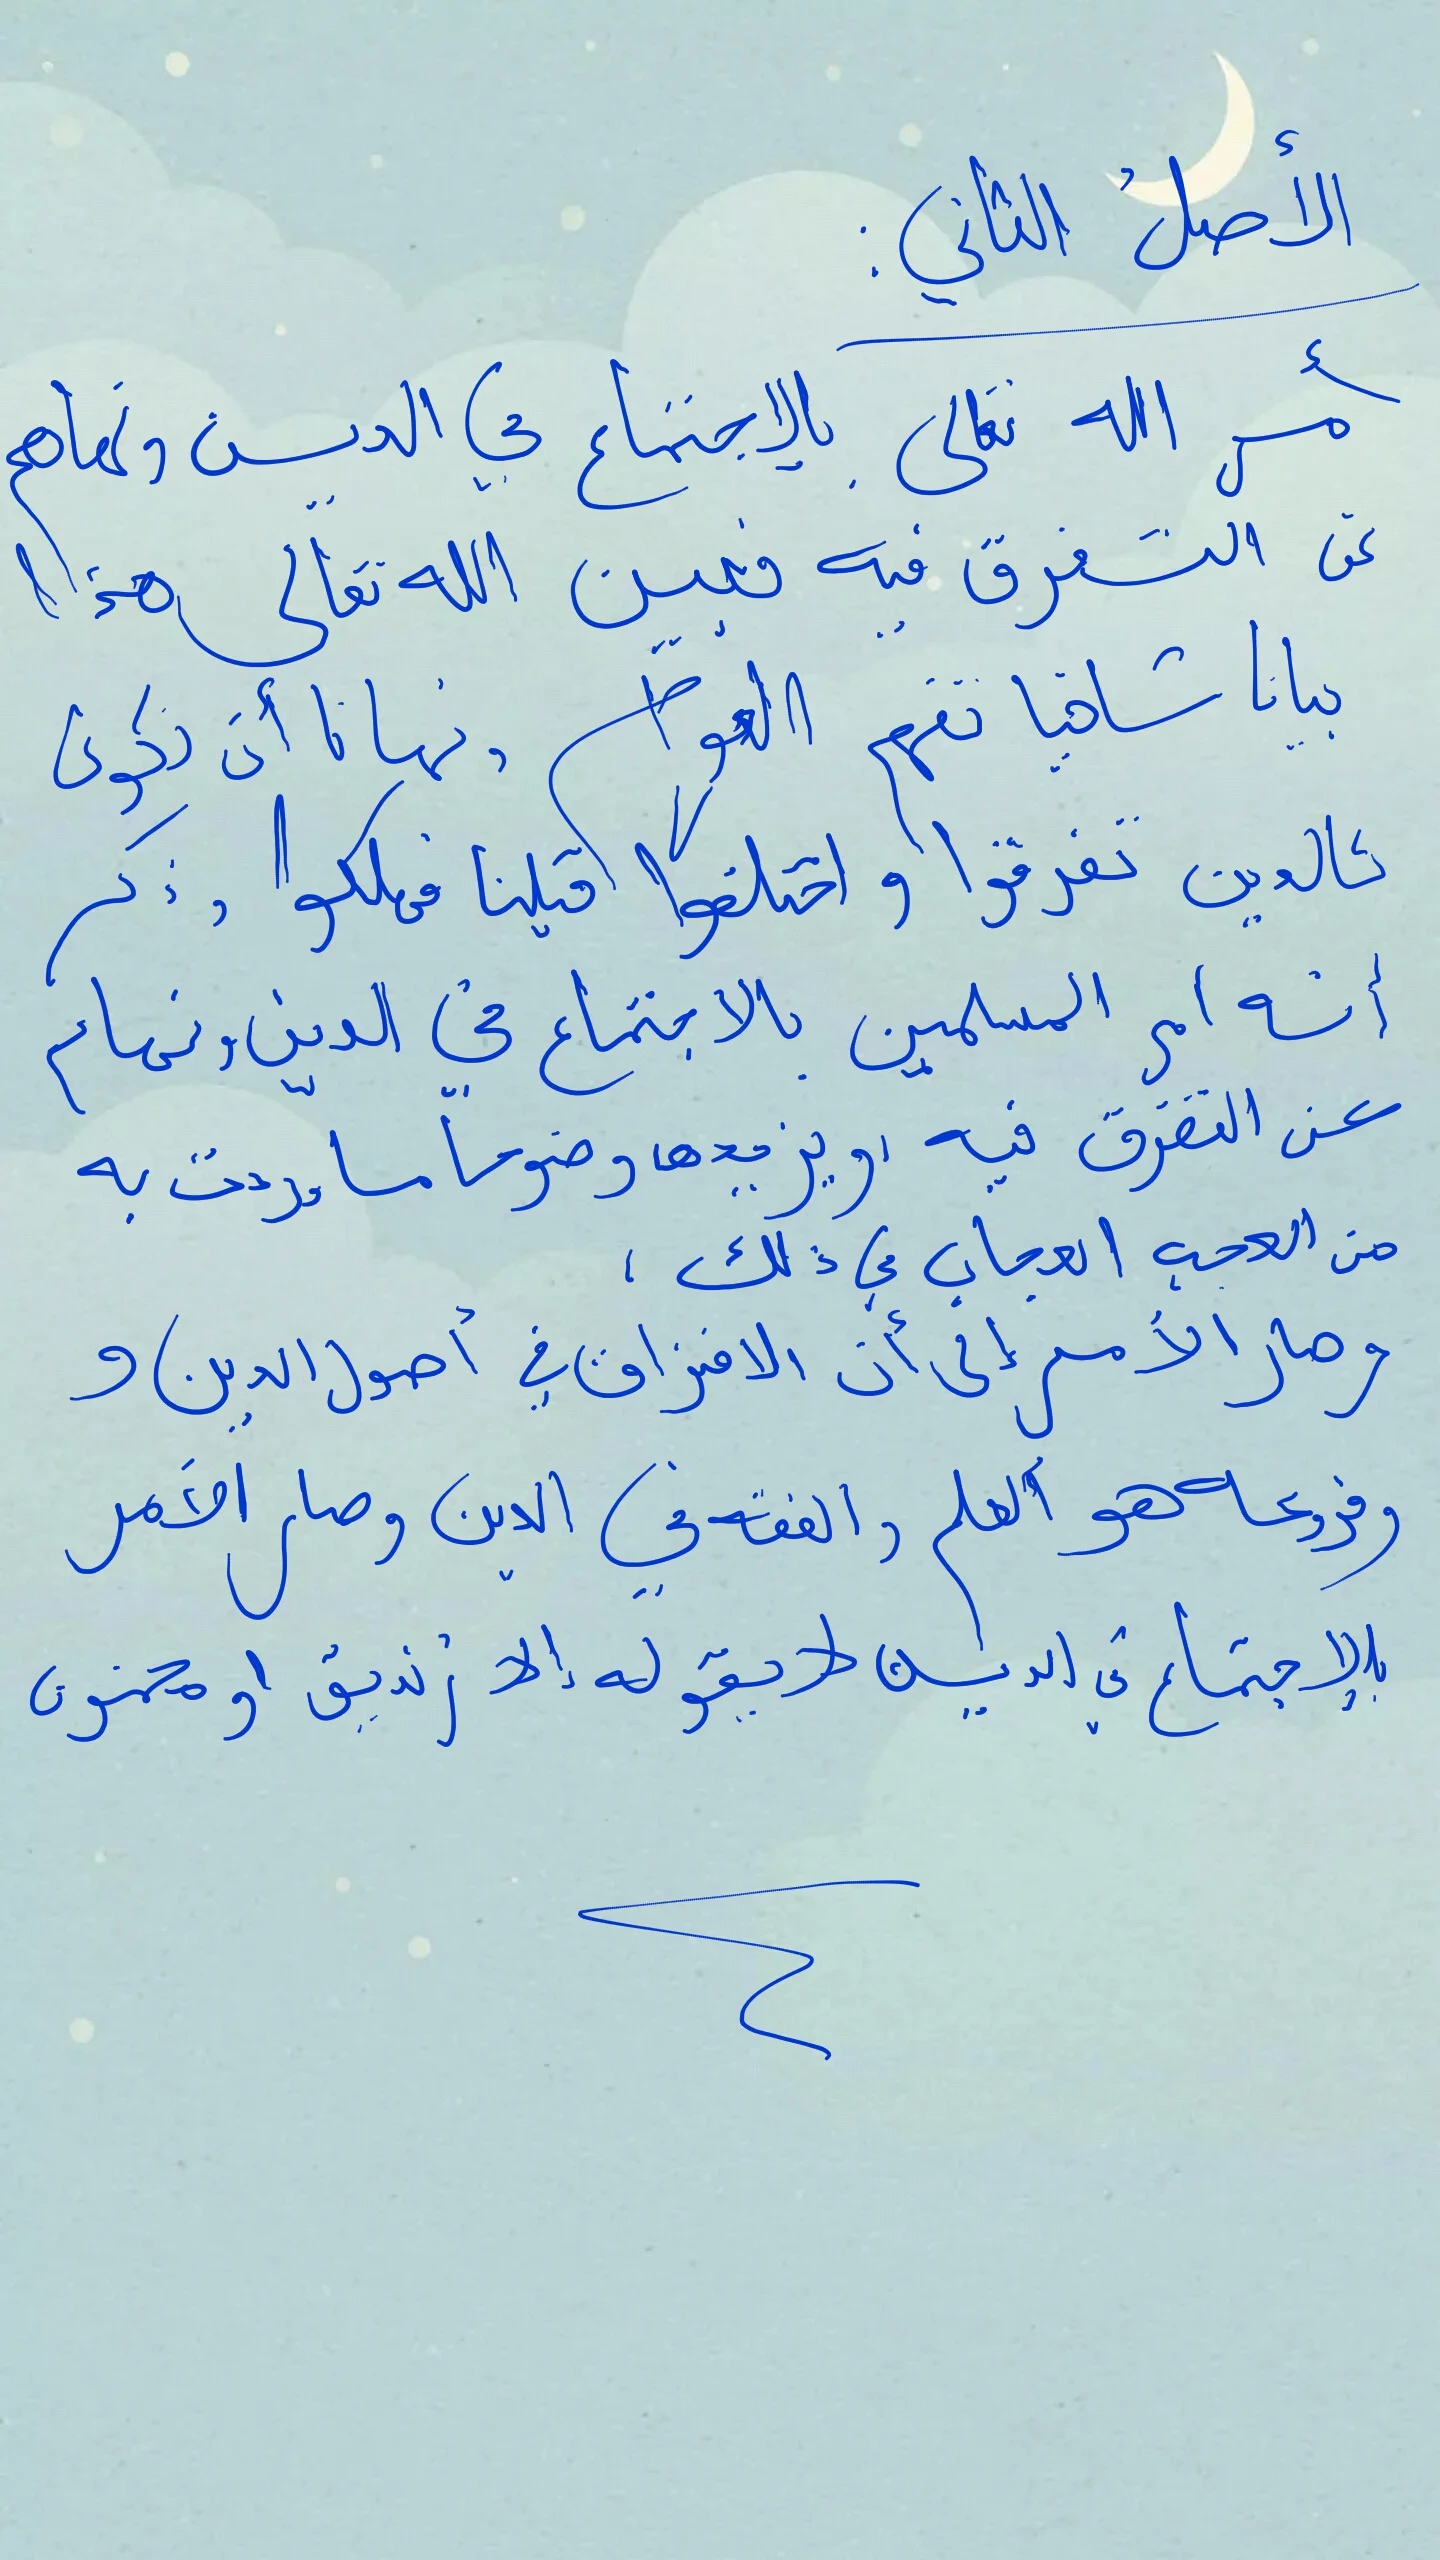 الأصلُ الثاني :
أمر الله تعالى بالإجتماع في الدين ونهاهم
عن التفرق فيه فبين الله تعالى هذا
بيانا شافيا تفهم العوام ونهانا أن نكون
كالدين تفرقوا و اختلفوا قبلنا فهلكوا وذكر
أنه امر المسلمين بالاجتماع في الدين ونهام
عن التفرق فيه ويزيدها وضوحا ما وردت به
من العجب العجاب في ذلك ،
وصار الأمر إلى أن الافتراق في أصول الدين و
وفروعه هو العلم والفقه في الدين وصار الأمر
بالإجتماع في الدين لا يقوله إلا زنديق او مجنون